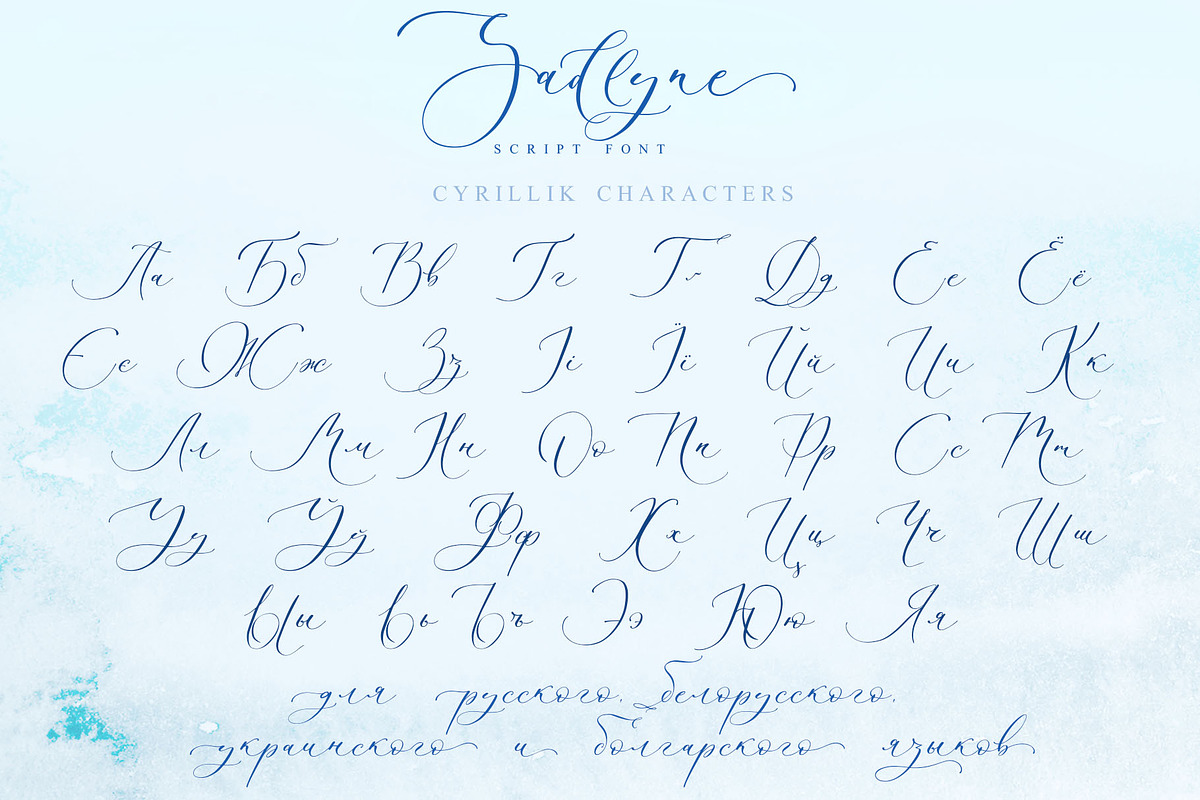 Sadlyne
SCRIPT FONT
CYRILLIK CHARACTERS
Аа Бб Вв Гг Ґґ Дд Ее Ёё
Єє Жж Зз Іі Її Йй Ии Кк
Лл Мм Нн Оо Пп Рр Сс Тт
Уу Ўў Фф Хх Цц Чч Шш
Ыы Ьь Ъъ Ээ Юю Яя
для русского, белорусского,
украинского и болгарского языков